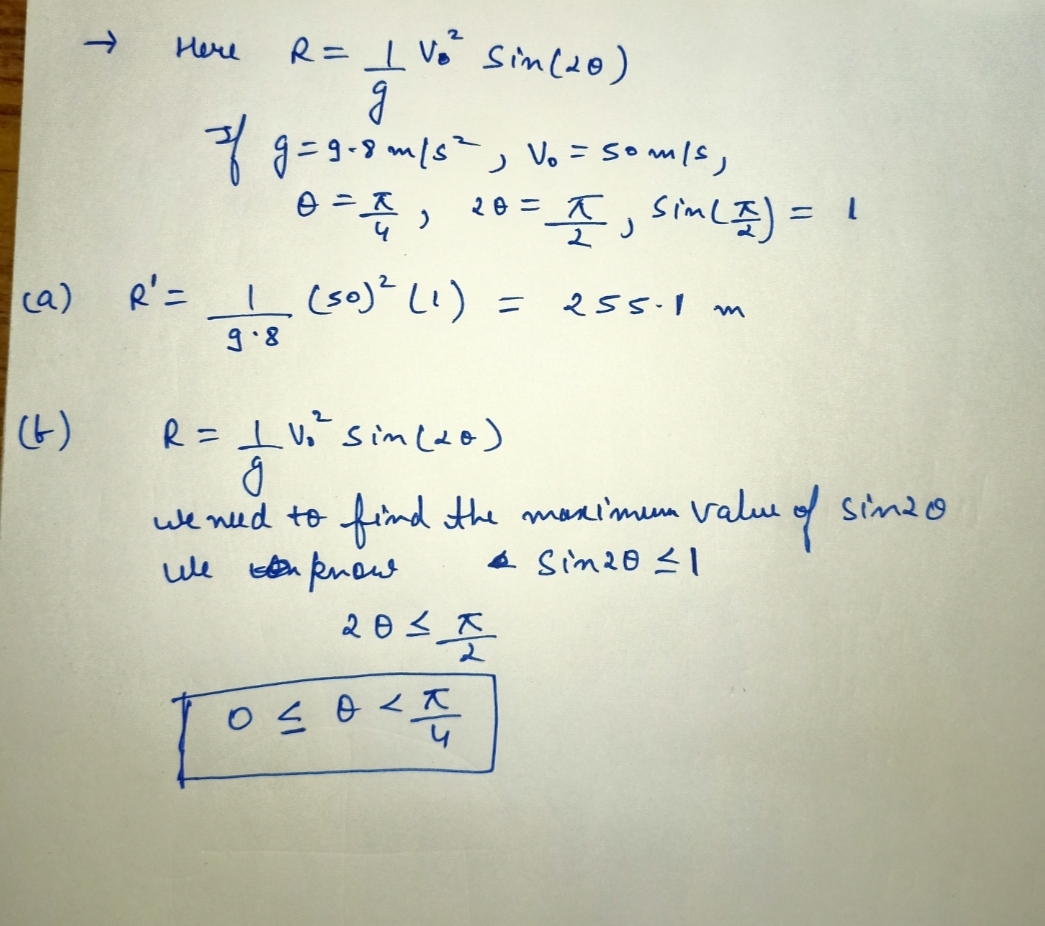 → Here R = 1/g V₀² Sin(2θ)
If g = 9.8 m/s², V₀ = 50 m/s,
θ = π/4, 2θ = π/2, Sin(π/2) = 1
(a) R' = 1/9.8 (50)² (1) = 255.1 m
(b) R = 1/g V₀² sin(2θ)
we need to find the maximum value of sin2θ
We know sin2θ ≤ 1
2θ ≤ π/2
0 ≤ θ < π/4